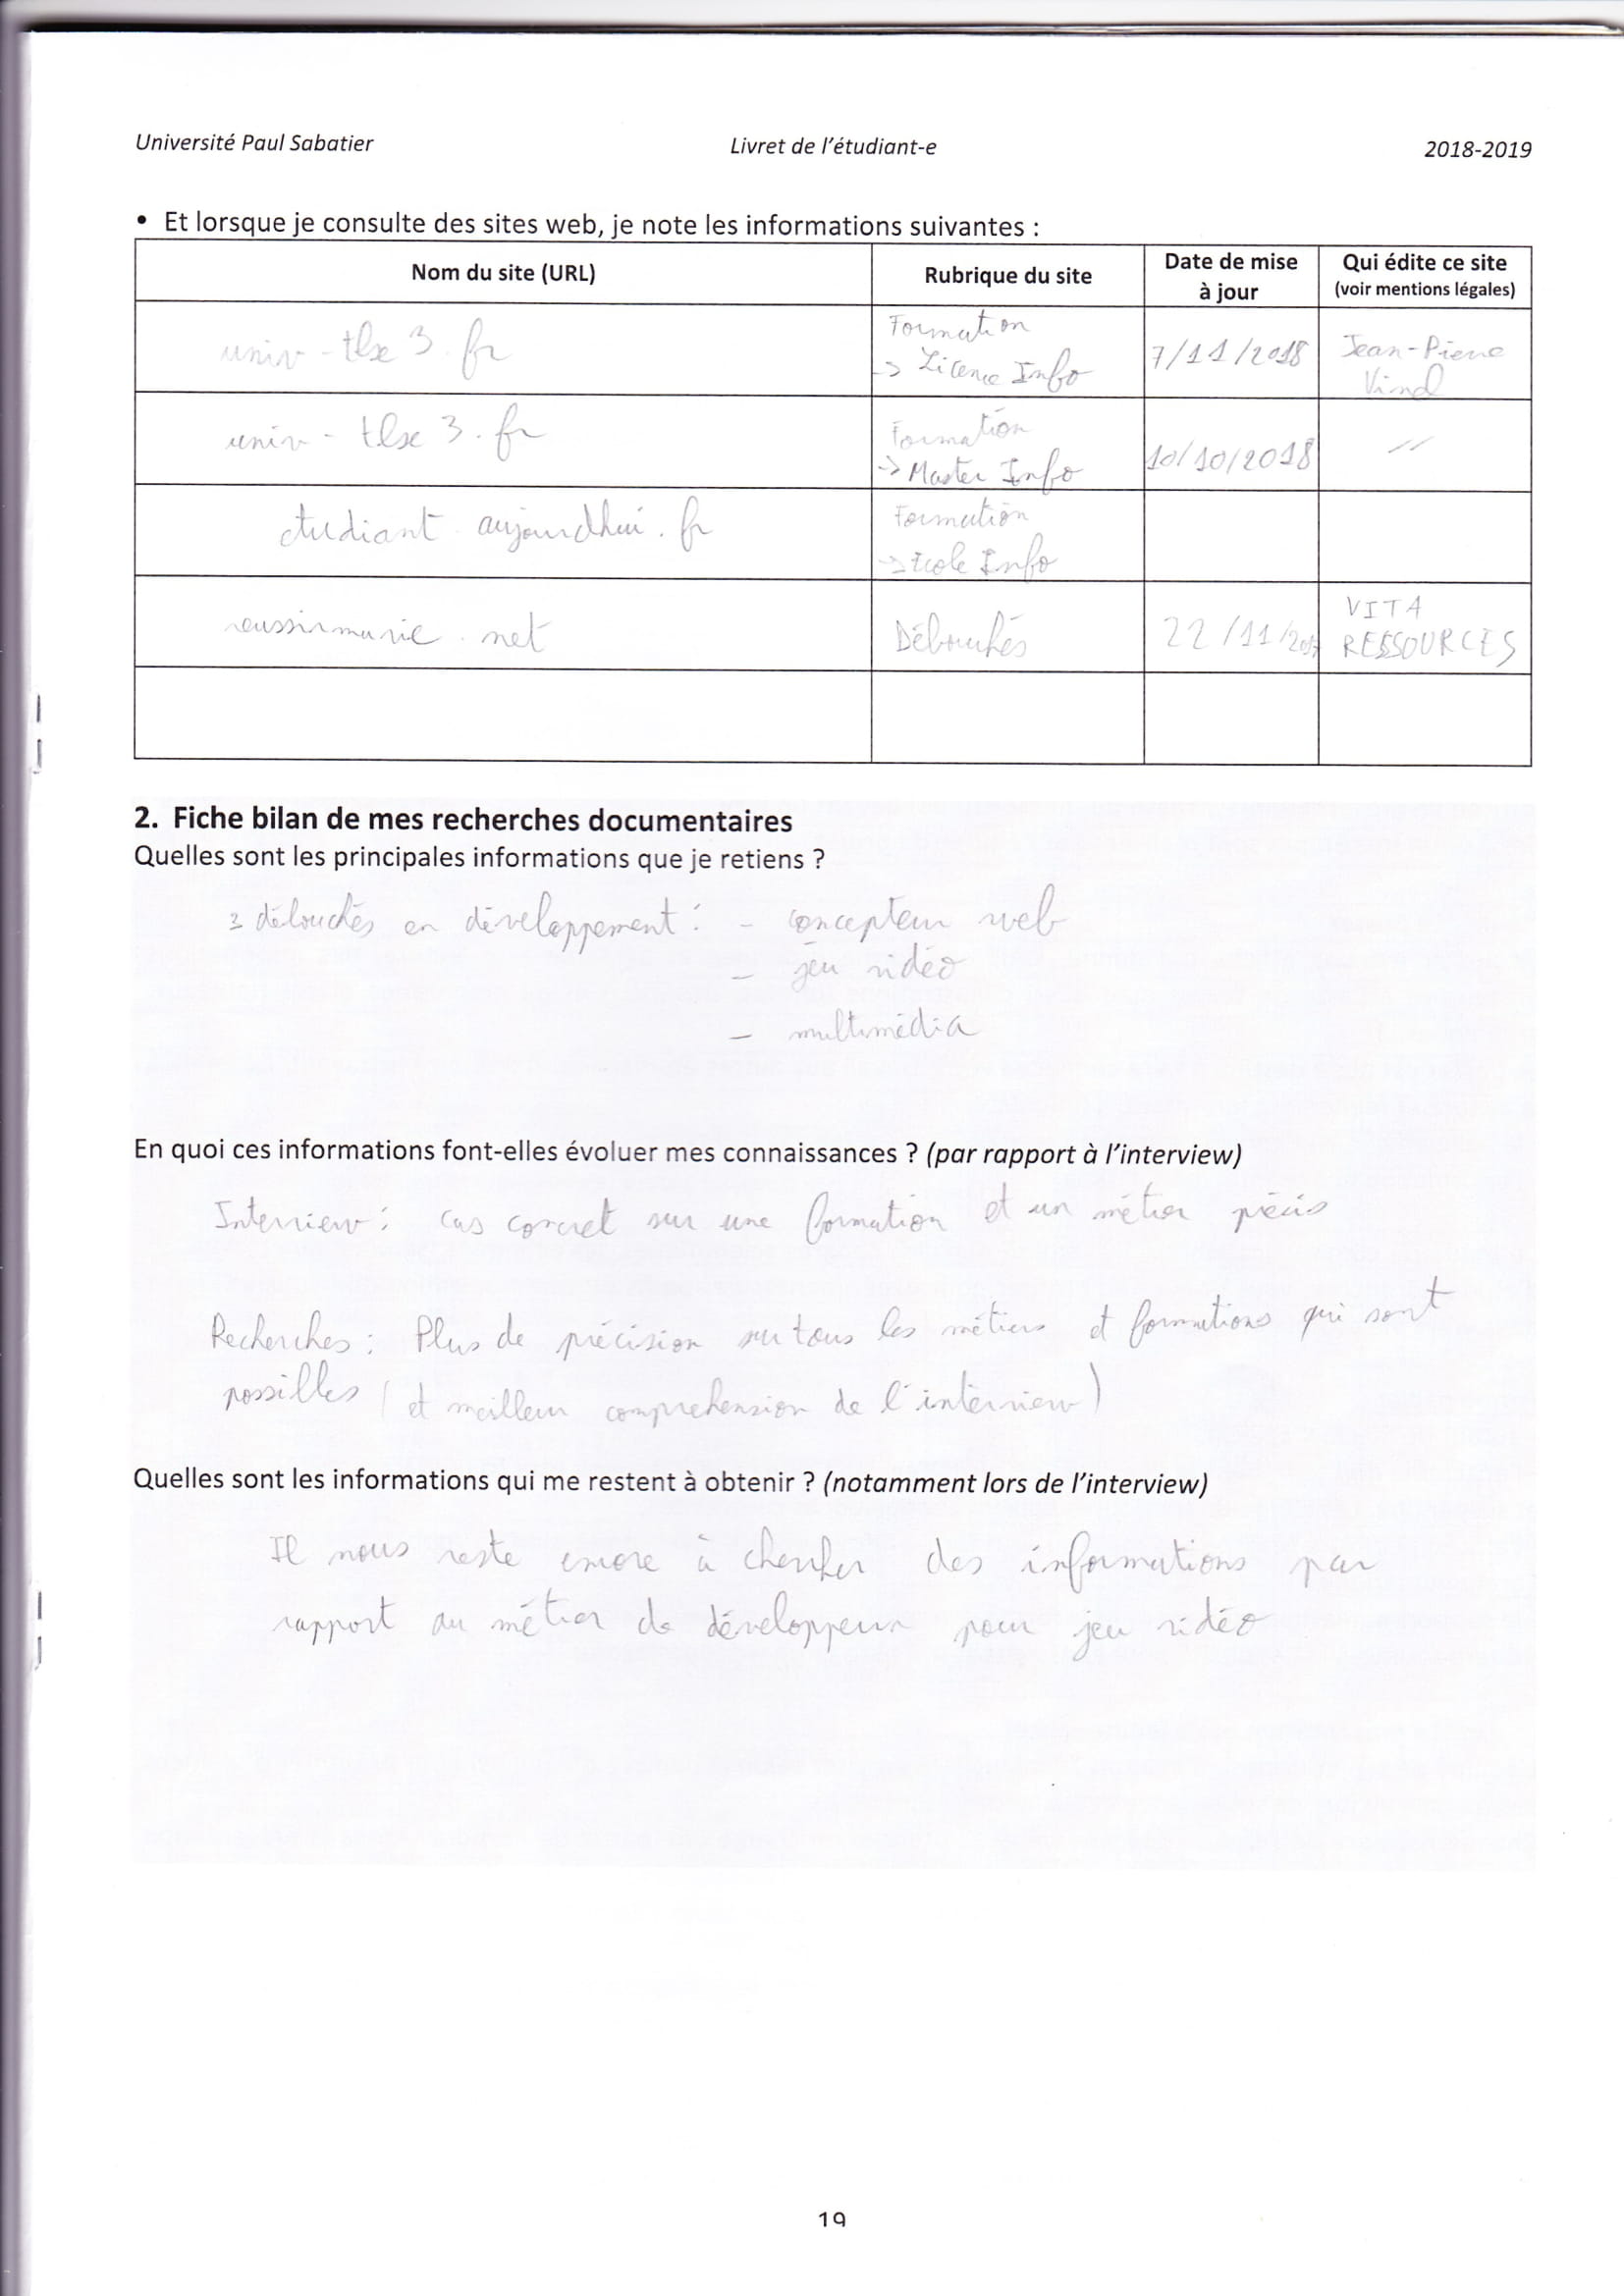 Université Paul Sabatier Livret de l'étudiant-e 2018-2019
• Et lorsque je consulte des sites web, je note les informations suivantes :
Nom du site (URL) Rubrique du site Date de mise à jour Qui édite ce site (voir mentions légales)
univ-tlse3.fr Formation -> Licence Info 7/11/2018 Jean-Pierre
univ-tlse3.fr Formation -> Master Info 10/10/2018 //
etudiant.aujourdhui.fr Formation -> Ecole Info
reussirmavie.net Débouchés 22/11/ VITA RESSOURCES
2. Fiche bilan de mes recherches documentaires
Quelles sont les principales informations que je retiens ?
3 débouchés en développement : - concepteur web
- jeu vidéo
- multimédia
En quoi ces informations font-elles évoluer mes connaissances ? (par rapport à l'interview)
Interview : cas concret sur une formation et un métier précis
Recherches : Plus de précision sur tous les métiers et formations qui sont
possibles (et meilleur compréhension de l'interview)
Quelles sont les informations qui me restent à obtenir ? (notamment lors de l'interview)
Il nous reste encore à chercher des informations par
rapport au métier de développeur pour jeu vidéo
19